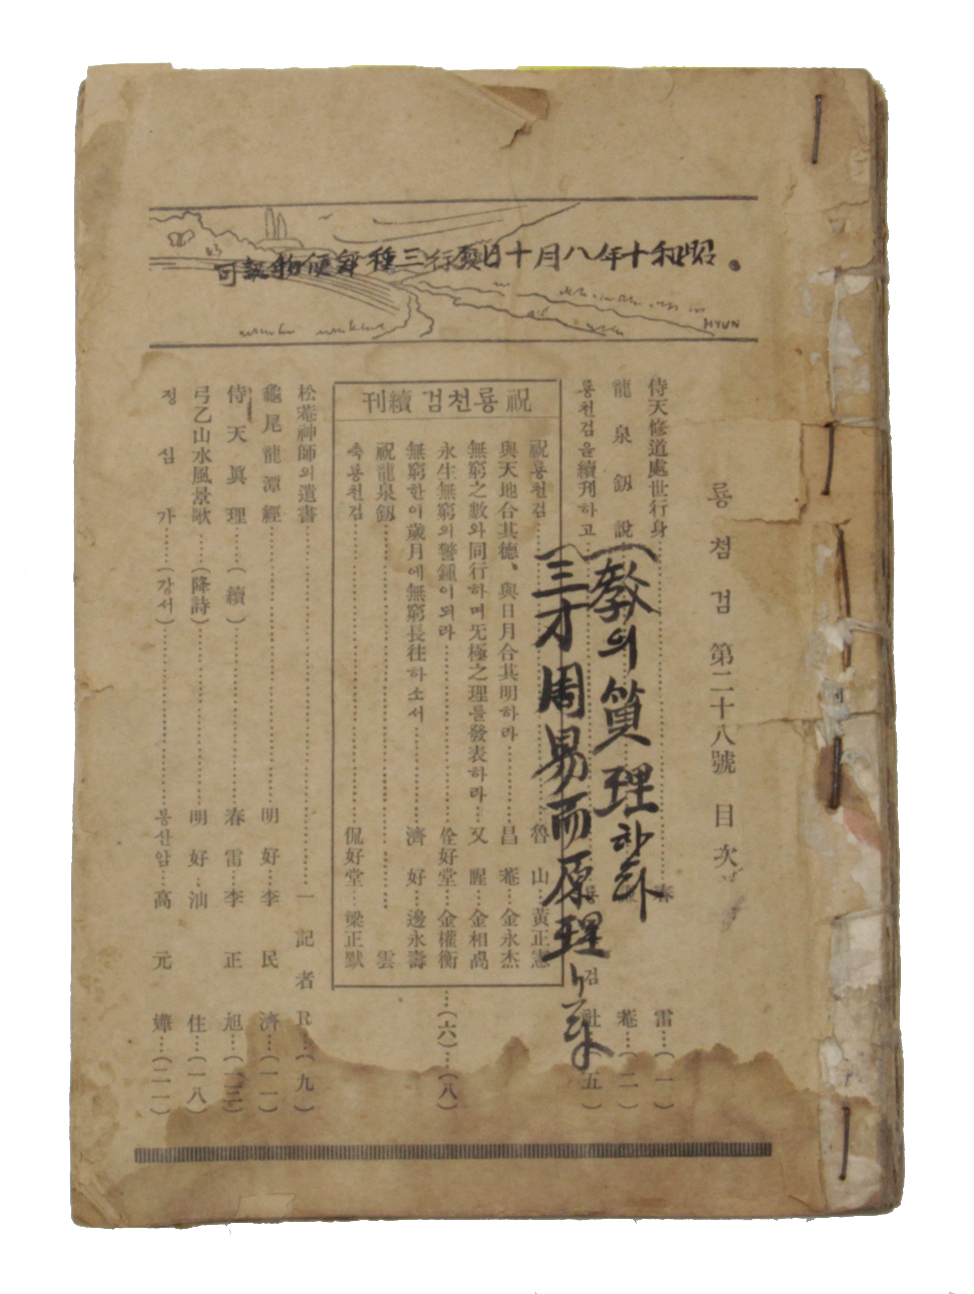 昭和十年八月十日第三種郵便物認可
HYUN
룡천검 第二十八號 目次
侍天修道處世行身 春雷 (一)
龍泉劔說 菴 (二)
룡천검을續刊하고 룡 검社 五)
祝룡천검續刊
祝룡천검 魯山 黃正憲
與天地合其德、與日月合其明하라 昌菴 金永杰
無窮之數와同行하며无極之理를發表하라 又醒 金相卨
永生無窮의警鍾이되라 佺好堂 金權衡 (六) (八)
無窮한이歲月에無窮長往하소서 濟好 邊永壽
祝龍泉劔 雲
축룡천검 侃好堂 梁正默
松菴神師의遺書 一記者R (九)
龜尾龍潭經 明好 李民濟 (一一)
侍天眞理 (續) 春雷 李正旭 (一三)
弓乙山水風景歌 (降詩) 明好 汕住 (一八)
정심가 (강서) 봉산암 高元 (二一)
(敎의質理하라
(三才周易而原理